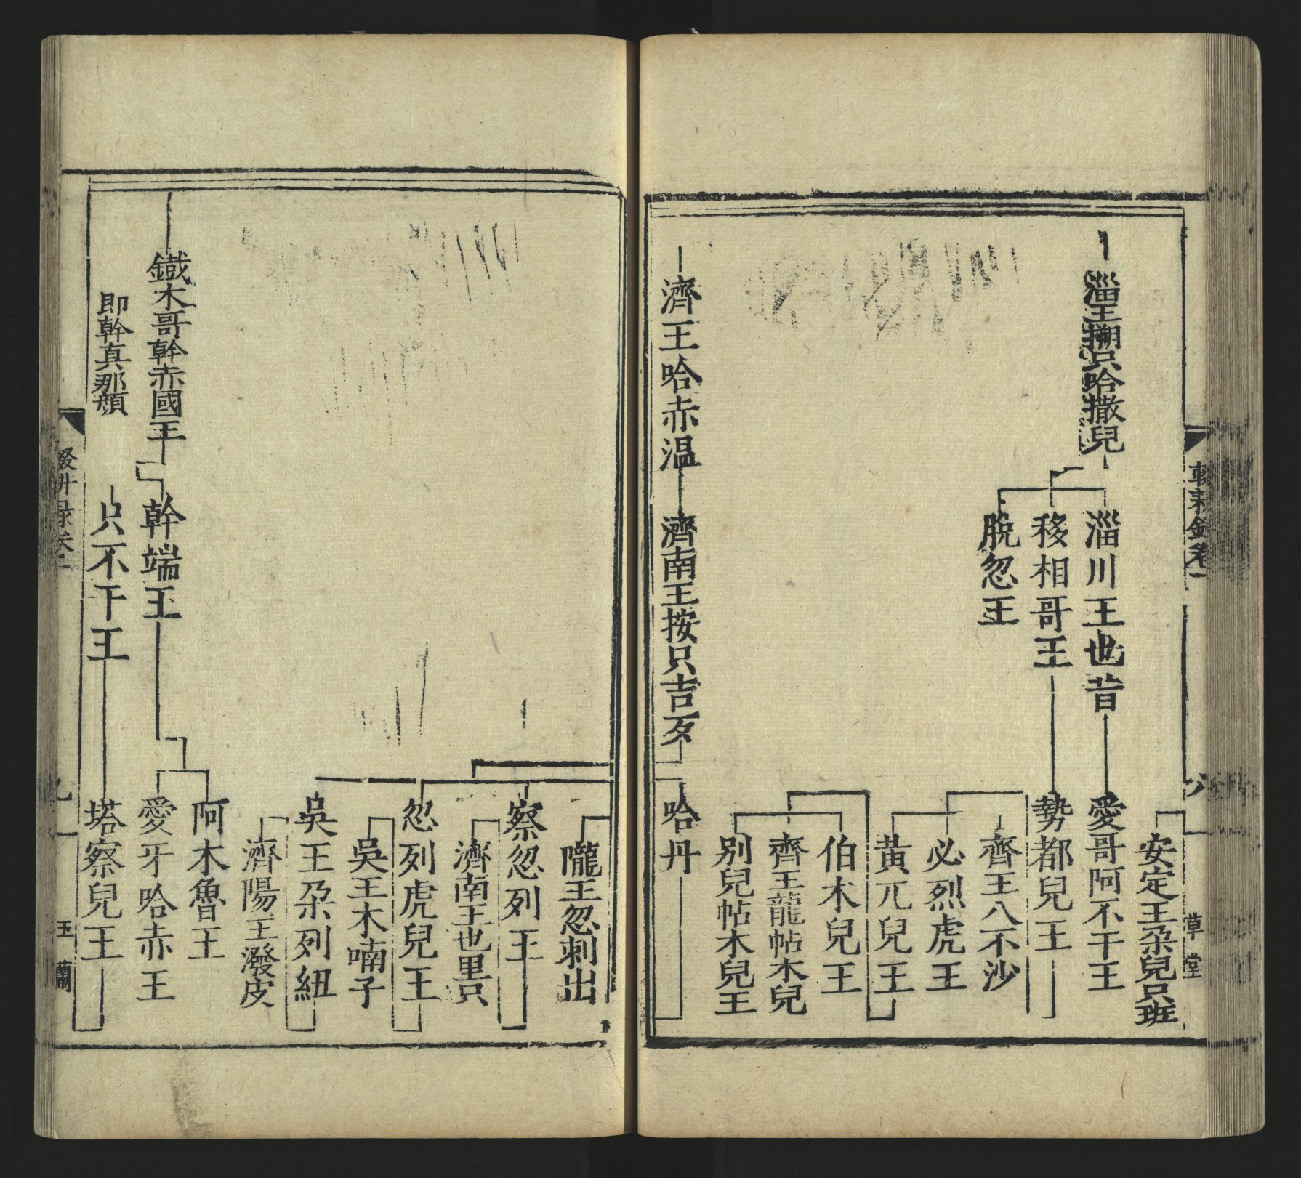 淄王搠只哈撒兒
淄川王也昔
移相哥王
脫忽王
安定王朶兒只班
愛哥阿不干王
勢都兒王
齊王八不沙
必烈虎王
黃兀兒王
伯木兒王
齊王龍帖木兒
別兒帖木兒王
濟王哈赤温
濟南王按只吉歹
哈丹
隴王忽刺出
察忽列王
濟南王也里只
忽列虎兒王
吳王木喃子
吳王朶列紐
濟陽王潑皮
鐵木哥斡赤國王
即斡真那顏
斡端王
只不干王
阿木魯王
愛牙哈赤王
塔察兒王
輟耕錄卷一
八
草堂
輟耕錄卷一
九
玉蘭